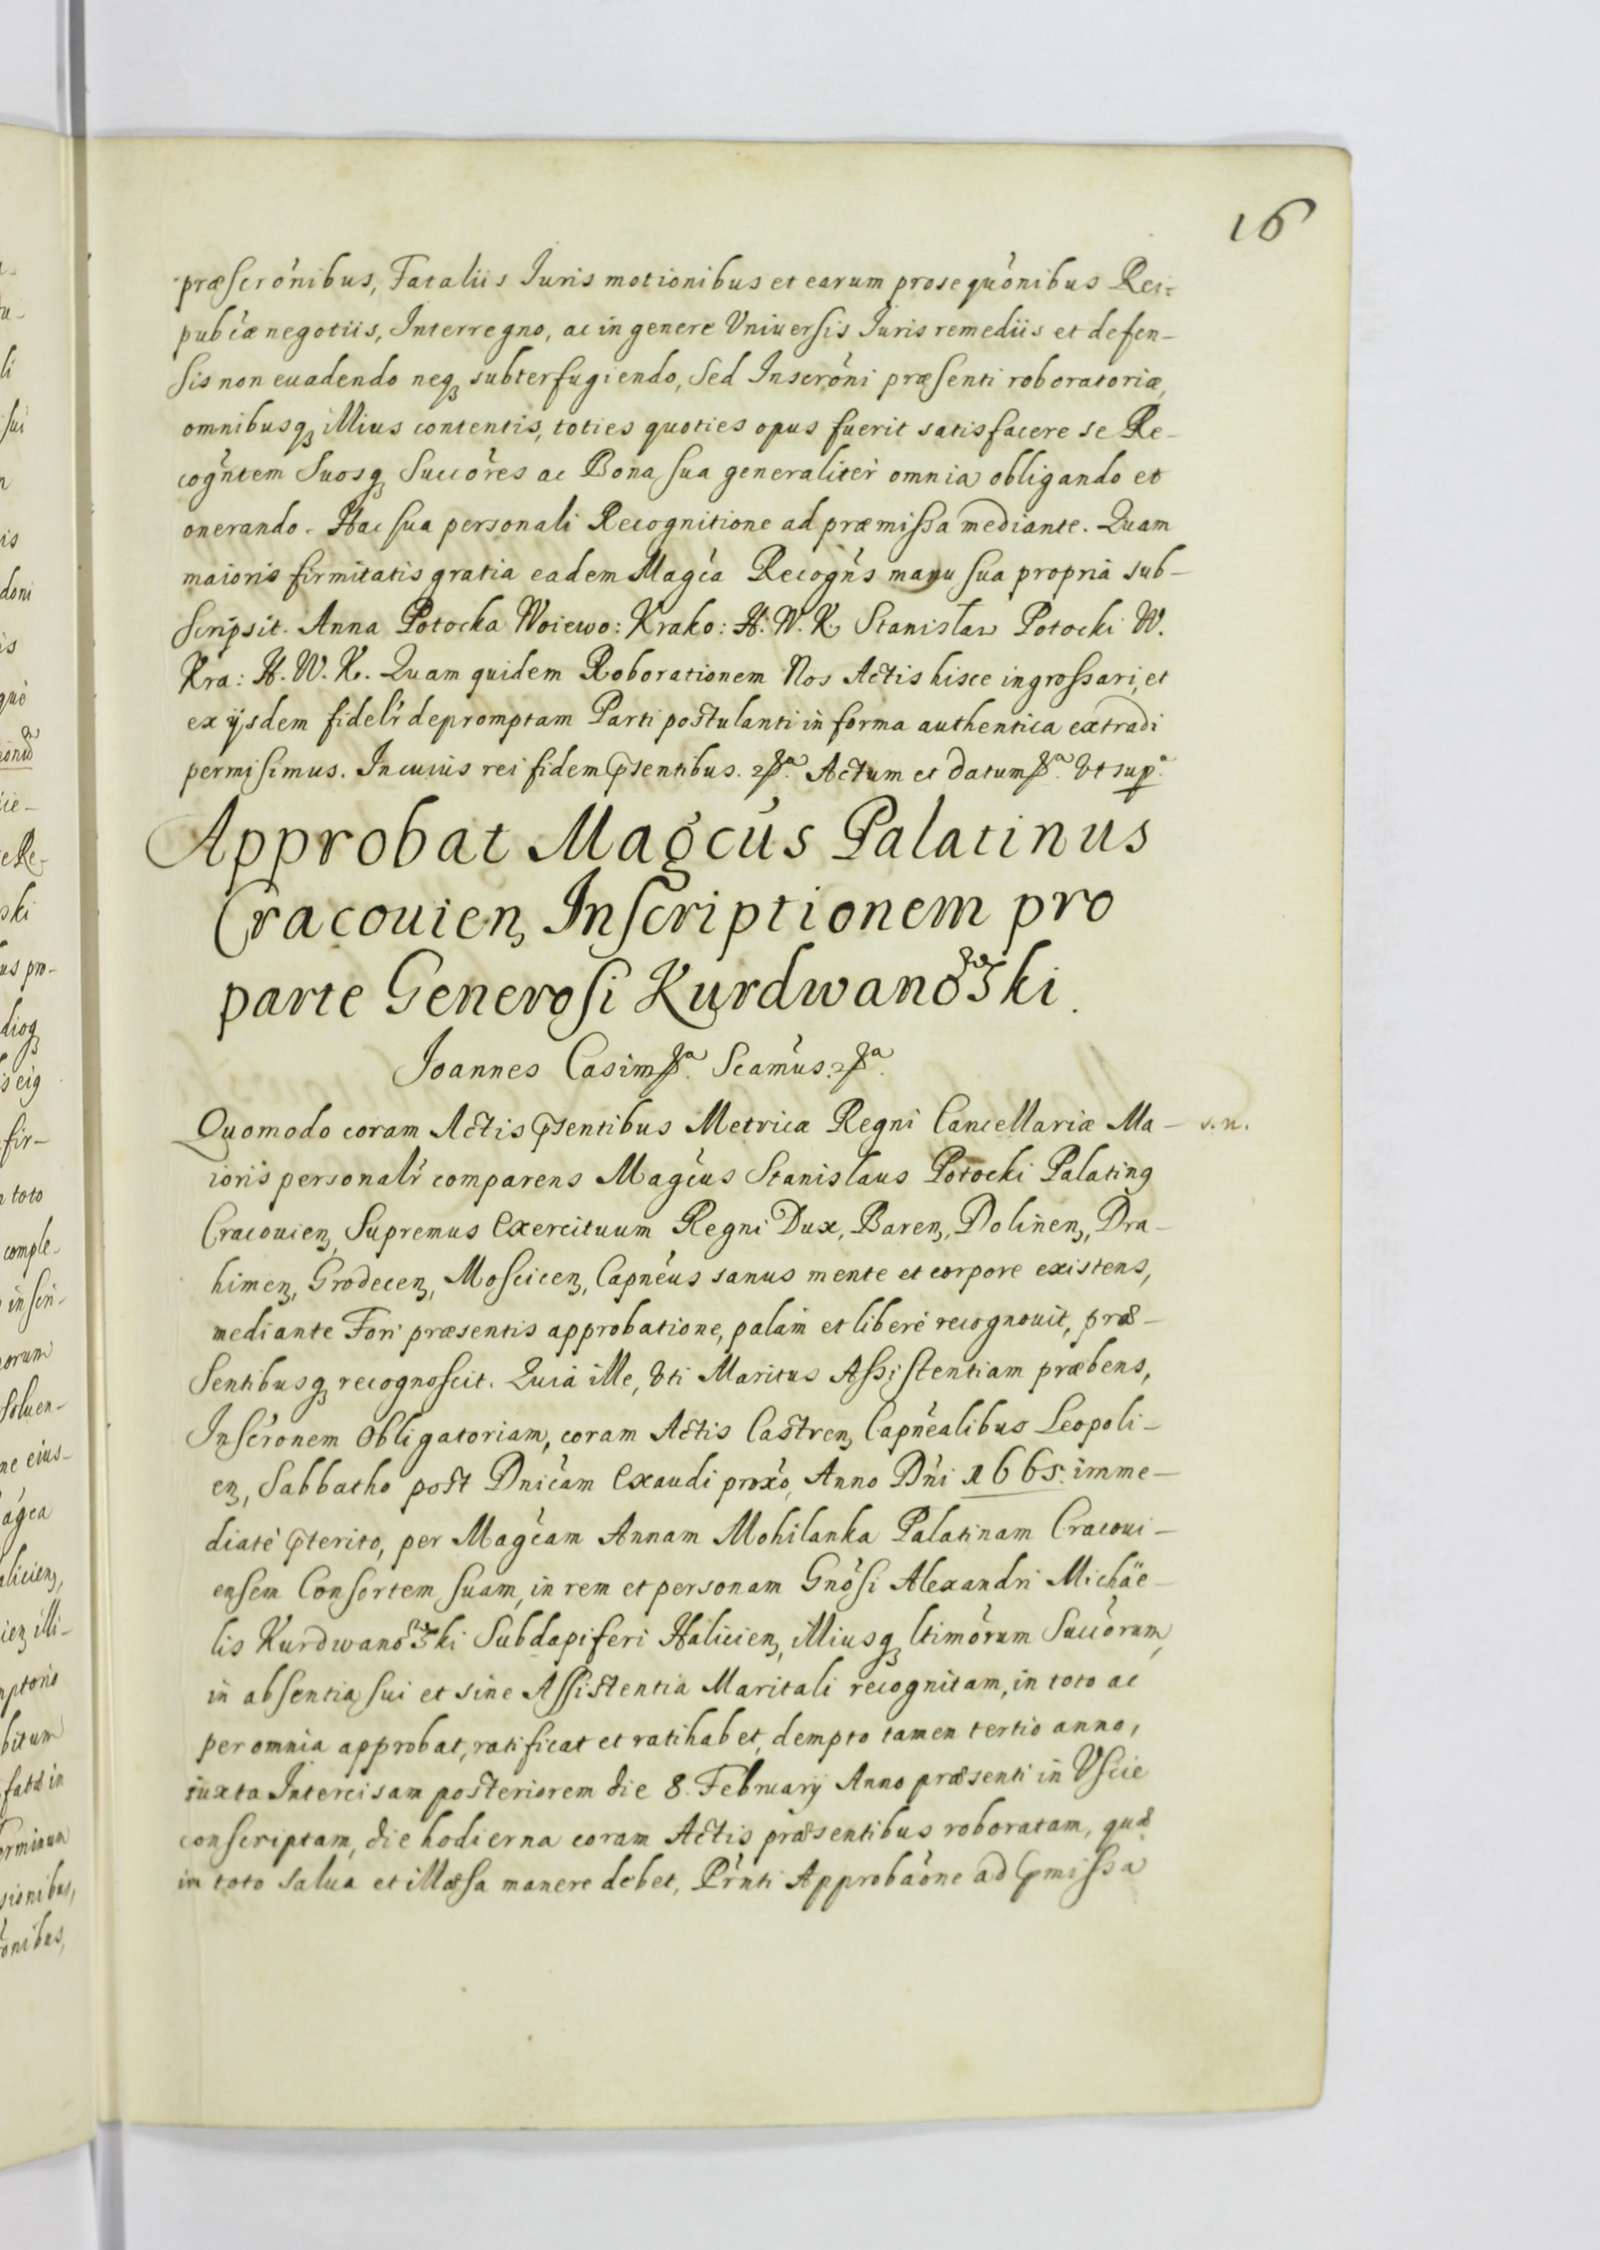 16
præscrõnibus, Fataliis Iuris motionibus et earum prosequõnibus Rei-
pubcæ negotiis, Interregno, ac in genere Vniuersis Iuris remediis et defen-
sis non euadendo neq3 subterfugiendo, Sed Inscrõni præsenti roboratoriæ,
omnibusq3 illius contentis, toties quoties opus fuerit satisfacere se Re-
cogñtem Suosq3 Succõres ac Bona sua generalitèr omnia obligando et
onerando. Hac sua personali Recognitione ad præmissa mediante. Quam
maioris firmitatis gratia eadem Magća Recogñs manu sua propria sub-
scripsit. Anna Potocka Woiewo: Krako: H. W. K. Stanisław Potocki W.
Kra: H. W. K. Quam quidem Roborationem Nos Actis hisce ingrossari, et
ex ijsdem fidelr depromptam Parti postulanti in forma authentica extradi
permisimus. In cuius rei fidem p̃sentibus. Actum et datum Vt sup.ª
Approbat Magcus Palatinus
Cracouien3 Inscriptionem pro
parte Generosi Kurdwanowski.
Ioannes Casim Scamus.
Quomodo coram Actis p̃sentibus Metrica Regni Cancellariæ Ma- s.n.
ioris personalr comparens Magćus Stanislaus Potocki Palatin9
Cracouien3, Supremus Exercituum Regni Dux, Baren3, Dolinen3, Dra-
himen3, Grodecen3, Moscicen3, Capneus sanus mente et corpore existens,
mediante Fori præsentis approbatione, palàm et liberè recognouit, præ-
sentibusq3 recognoscit. Quia ille, Vti Maritus Assistentiam præbens,
Inscrõnem Obligatoriam, coram Actis Castren3 Capnealibus Leopoli-
en3, Sabbatho post Dnićam Exaudi proxo, Anno Dñi 1665. imme-
diatè p̃terito, per Magćam Annam Mohilanka Palatinam Cracoui-
ensem Consortem suam, in rem et personam Gnõsi Alexandri Michäe-
lis Kurdwanowski Subdapiferi Halicien3, illiusq3 ltimõrum Succõrum,
in absentia sui et sine Assistentia Maritali recognitam, in toto ac
per omnia approbat, ratificat et ratihabet, dempto tamen tertio anno,
iuxta Intercisam posteriorem die 8. Februarij Anno præsenti in Vscie
conscriptam, die hodierna coram Actis præsentibus roboratam, quæ
in toto salua et illæsa manere debet, Prñti Approbaõne ad p̃missa